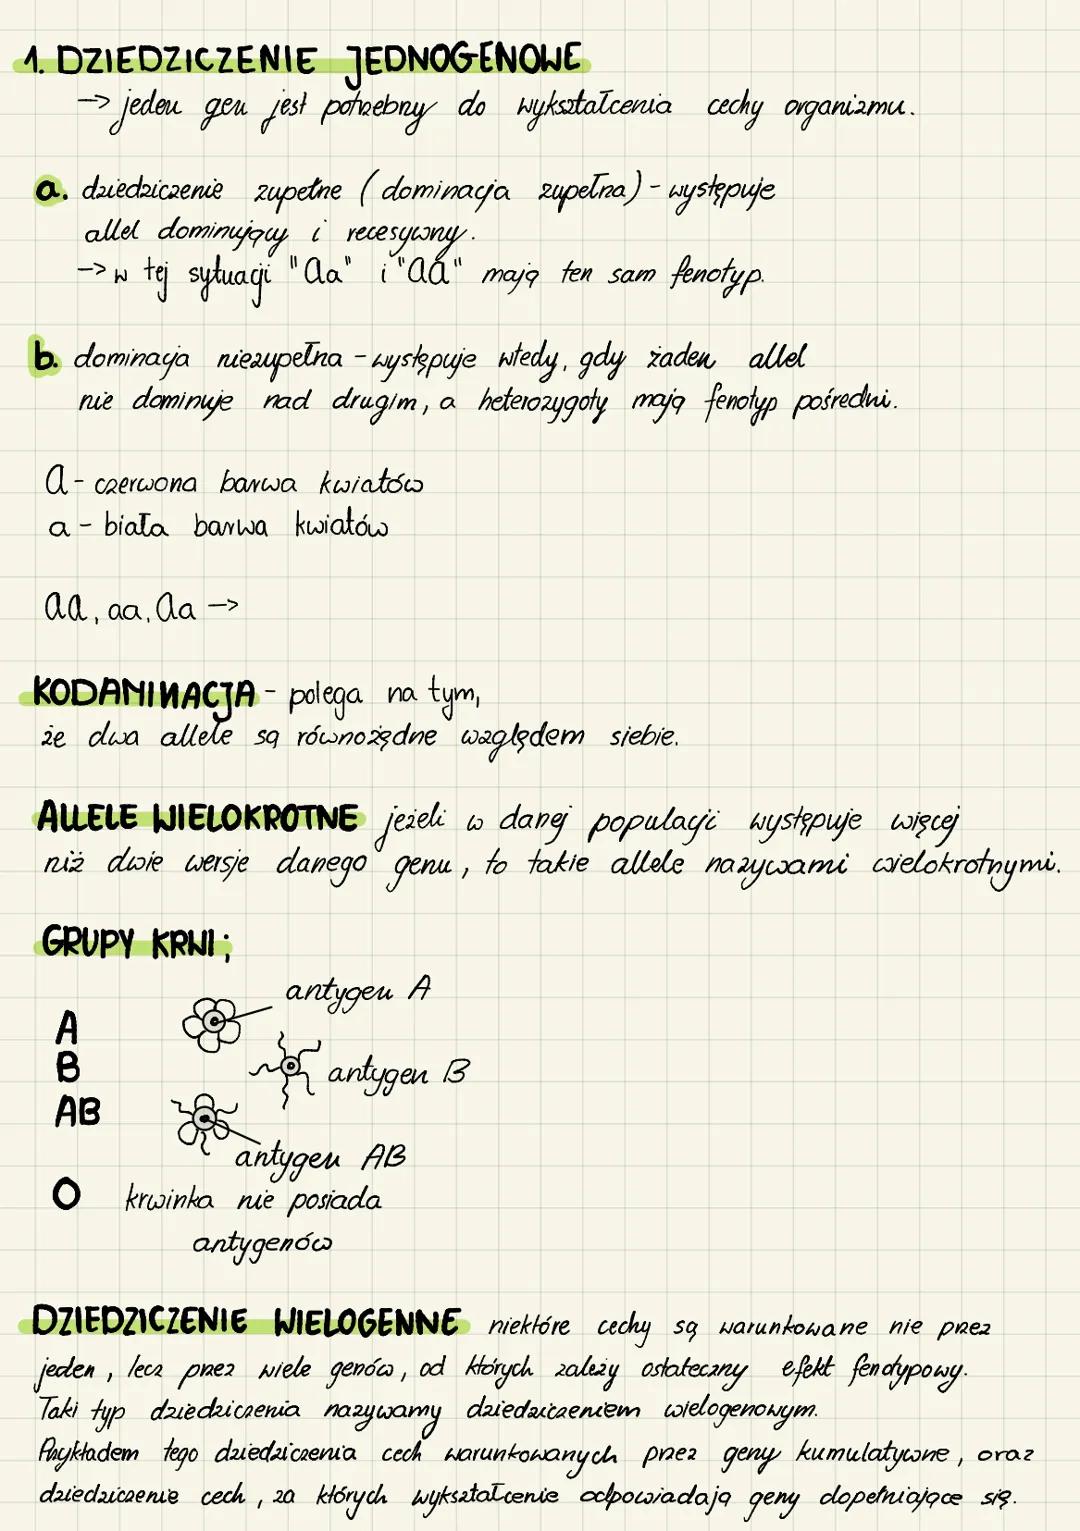 1. DZIEDZICZENIE JEDNOGENOWE
-> jeden gen jest potrzebny do wykształcenia cechy organizmu.
a. dziedziczenie zupełne (dominacja zupełna) - występuje
allel dominujący i recesywny.
-> w tej sytuacji "Aa" i "AA" mają ten sam fenotyp.
b. dominacja niezupełna - występuje wtedy, gdy żaden allel
nie dominuje nad drugim, a heterozygoty mają fenotyp pośredni.
A - czerwona barwa kwiatów
a - biała barwa kwiatów
AA, aa, Aa ->
KODAMINACJA - polega na tym,
że dwa allele są równożędne względem siebie.
ALLELE WIELOKROTNE jeżeli w danej populacji występuje więcej
niż dwie wersje danego genu, to takie allele nazywami wielokrotnymi.
GRUPY KRWI;
antygen A
A
B
antygen B
AB
antygen AB
O krwinka nie posiada
antygenów
DZIEDZICZENIE WIELOGENNE niektóre cechy są warunkowane nie przez
jeden, lecz przez wiele genów, od których zależy ostateczny efekt fenotypowy.
Taki typ dziedziczenia nazywamy dziedziczeniem wielogenowym.
Przykładem tego dziedziczenia cech warunkowanych przez geny kumulatywne, oraz
dziedziczenie cech, za których wykształcenie odpowiadają geny dopełniające się.